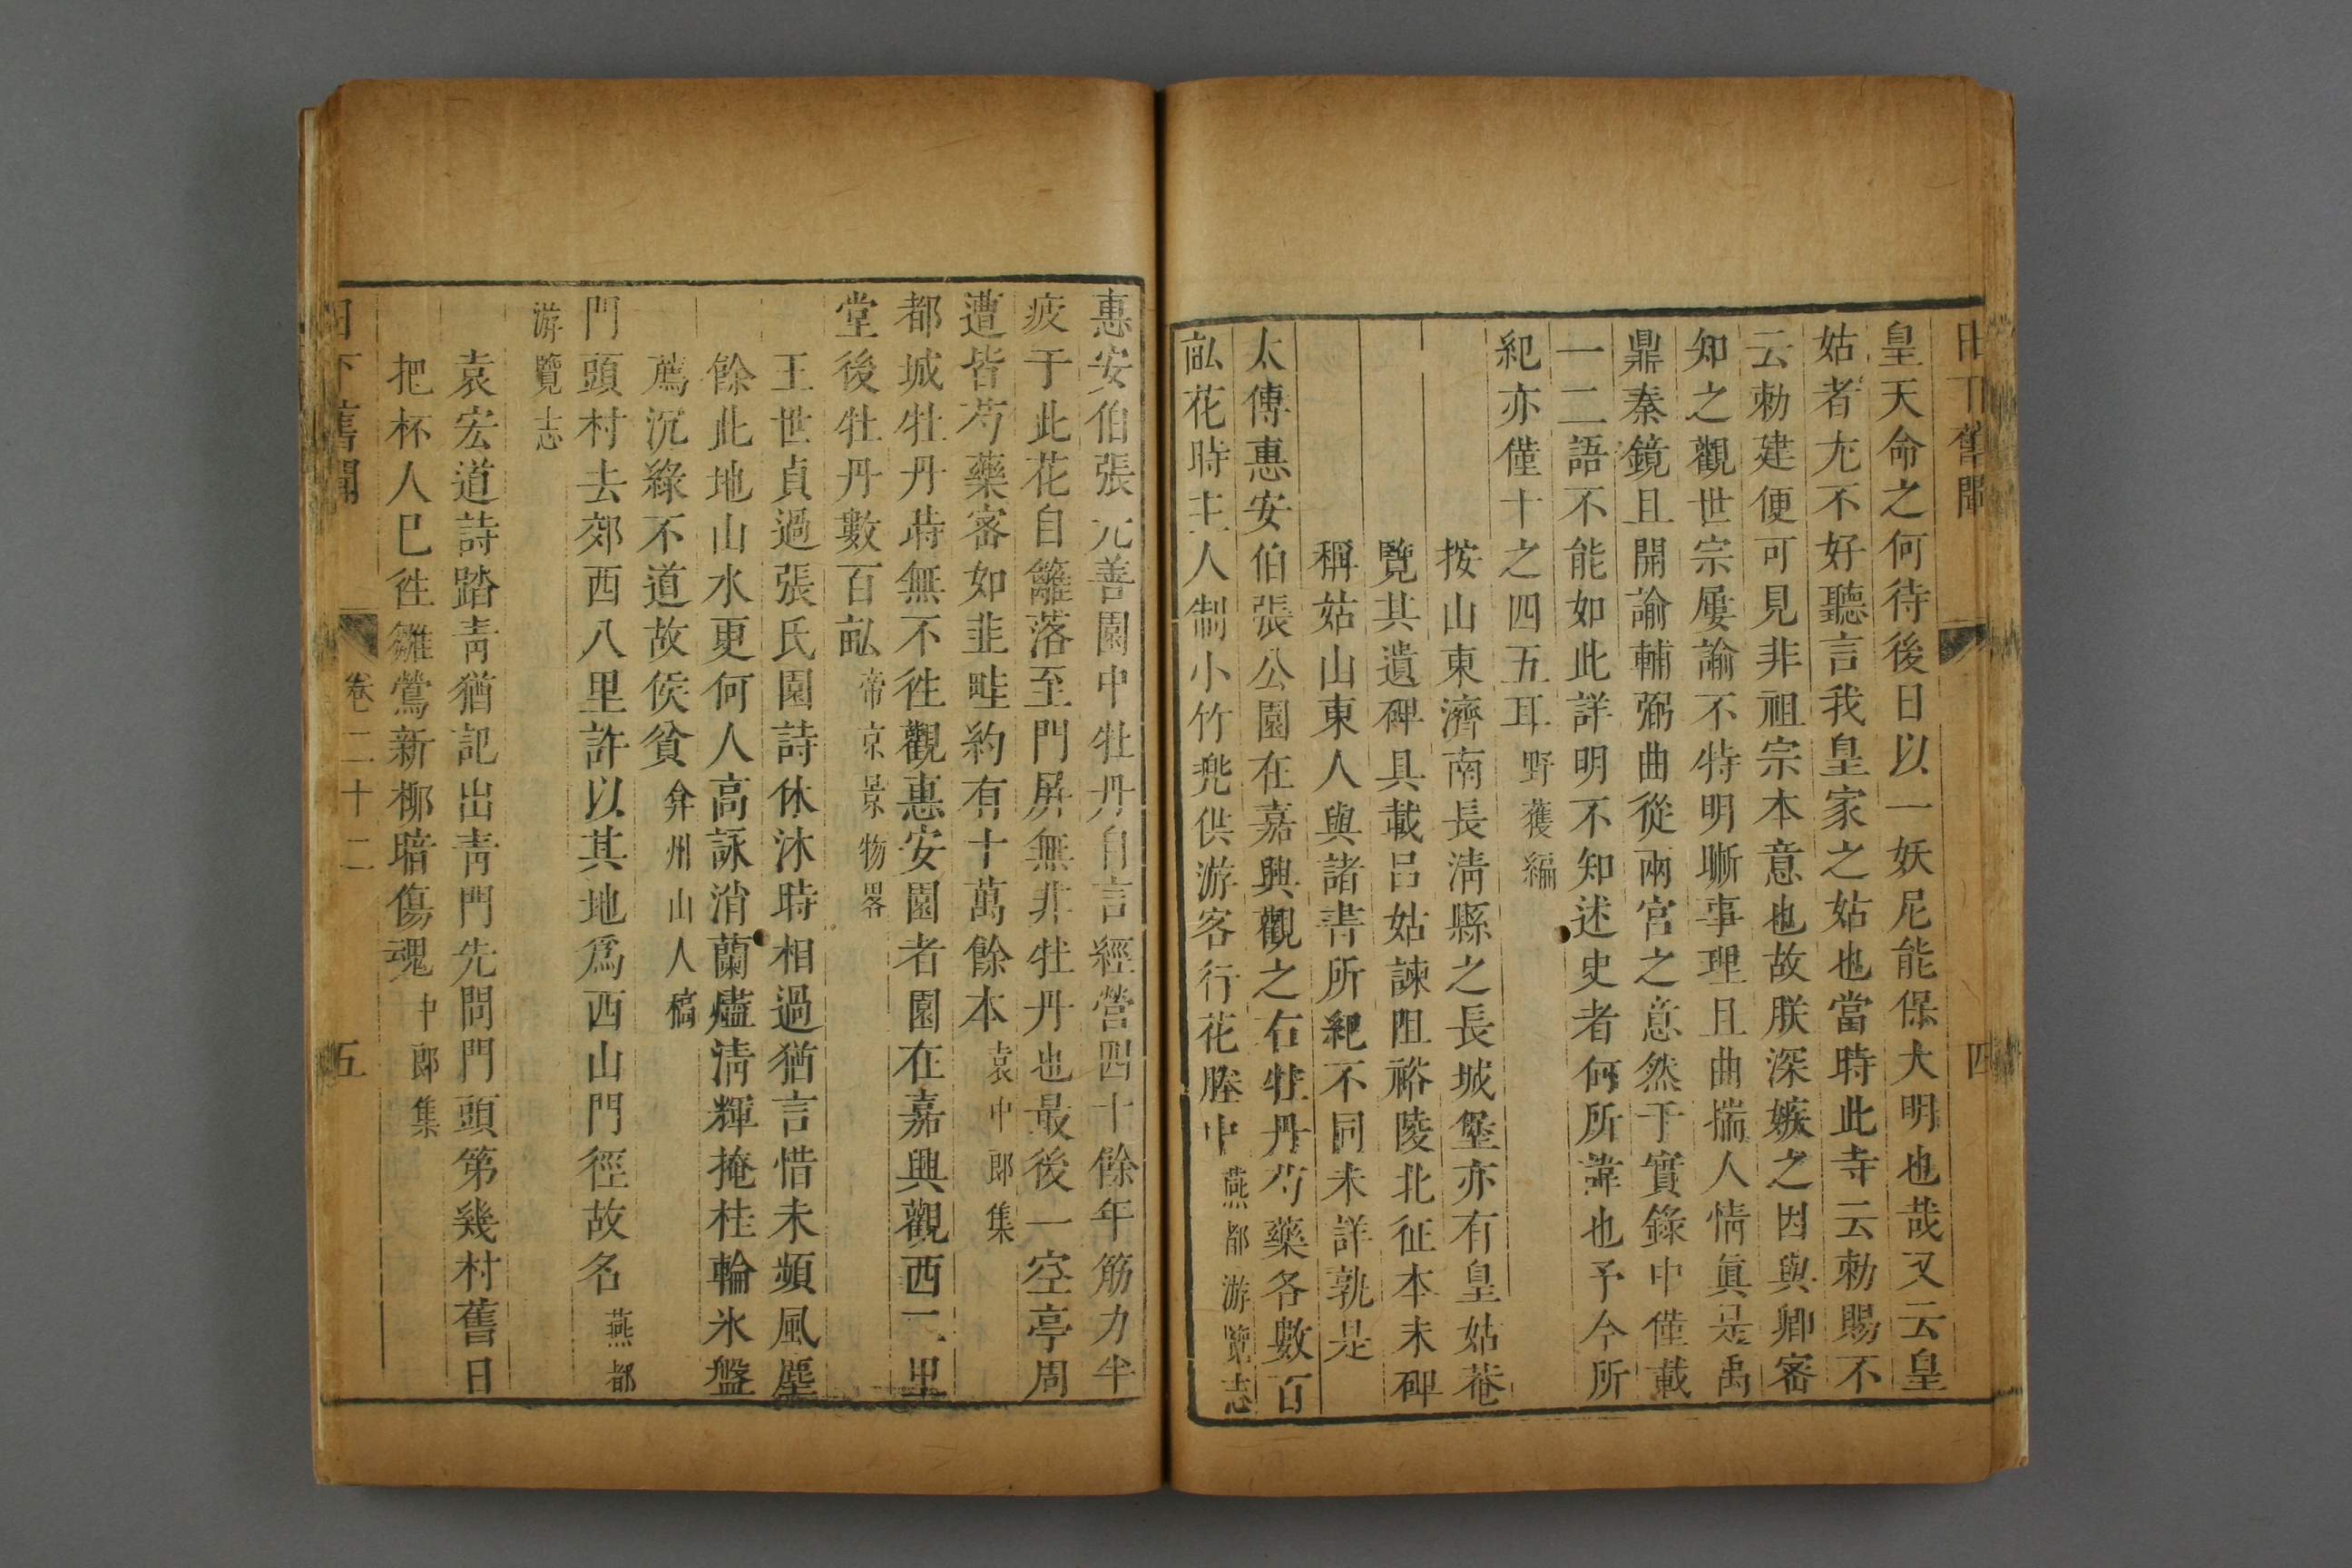 日下舊聞
四
皇天命之何待後日以一妖尼能保大明也哉又云皇
姑者尢不好聽言我皇家之姑也當時此寺云勅賜不
云勅建便可見非祖宗本意也故朕深嫉之因與卿審
知之觀世宗屢諭不特明晰事理且曲揣人情眞是禹
鼎秦鏡且開諭輔弼曲從兩宮之意然于實錄中僅載
一二語不能如此詳明不知述史者何所諱也予今所
紀亦僅十之四五耳野獲編
按山東濟南長淸縣之長城堡亦有皇姑菴
覽其遺碑具載呂姑諫阻裕陵北征本末碑
稱姑山東人與諸書所紀不同未詳孰是
太傅惠安伯張公園在嘉興觀之右牡丹芍藥各數百
畝花時主人制小竹兠供游客行花塍中燕都游覽志
惠安伯張元善園中牡丹自言經營四十餘年筋力半
疲于此花自籬落至門屏無非牡丹也最後一空亭周
遭皆芍藥審如韭畦約有十萬餘本袁中郎集
都城牡丹時無不徃觀惠安園者園在嘉興觀西二里
堂後牡丹數百畝帝京景物畧
王世貞過張氏園詩休沐時相過猶言惜未頻風塵
餘此地山水更何人高詠消蘭燼淸輝掩桂輪氷盤
薦沉綠不道故侯貧弇州山人稿
門頭村去郊西八里許以其地爲西山門徑故名燕都
游覽志
袁宏道詩踏靑猶記出靑門先問門頭第幾村舊日
把杯人巳徃雛鶯新柳暗傷魂中郎集
日下舊聞
卷二十二
五